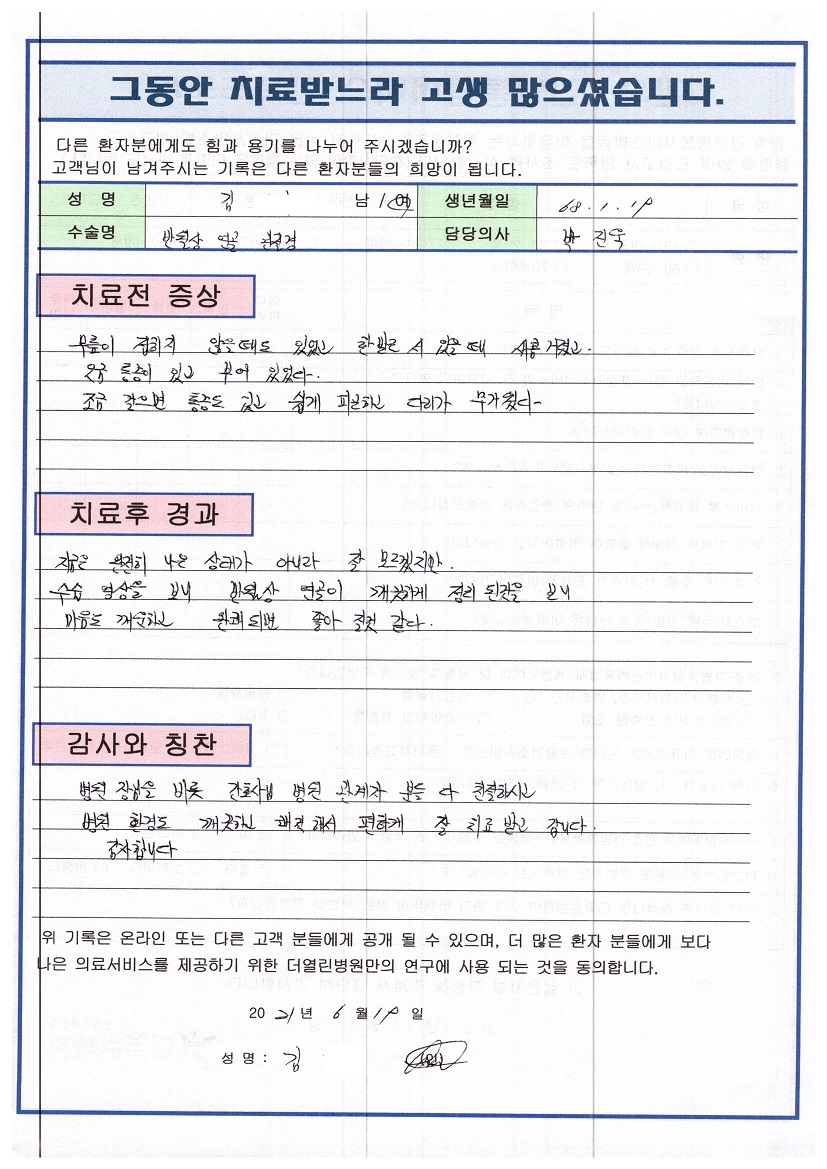 그동안 치료받느라 고생 많으셨습니다.
다른 환자분에게도 힘과 용기를 나누어 주시겠습니까?
고객님이 남겨주시는 기록은 다른 환자분들의 희망이 됩니다.
성 명 김 남 / 여 생년월일 68. 1. 19
수술명 반월상 연골 담당의사 박 진욱
치료전 증상
무릎이 접히지 않을때도 있었고 한발로 서 있을 때 시큰거렸고.
오금 통증이 있고 부어 있었다.
조금 걸으면 통증도 있고 쉽게 피곤하고 다리가 무거웠다-
치료후 경과
지금은 완전히 나은 상태가 아니라 잘 모르겠지만.
수술 영상을 보니 반월상 연골이 깨끗하게 정리된걸을 보니
마음도 개운하고 완쾌되면 좋아 질것 같다.
감사와 칭찬
병원 장님을 비롯 간호사님 병원 관계자 분들 다 친절하시고
병원 환경도 깨끗하고 쾌적해서 편하게 잘 치료 받고 갑니다.
감사합니다
위 기록은 온라인 또는 다른 고객 분들에게 공개 될 수 있으며, 더 많은 환자 분들에게 보다
나은 의료서비스를 제공하기 위한 더열린병원만의 연구에 사용 되는 것을 동의합니다.
20 21 년 6 월 19 일
성 명 : 김